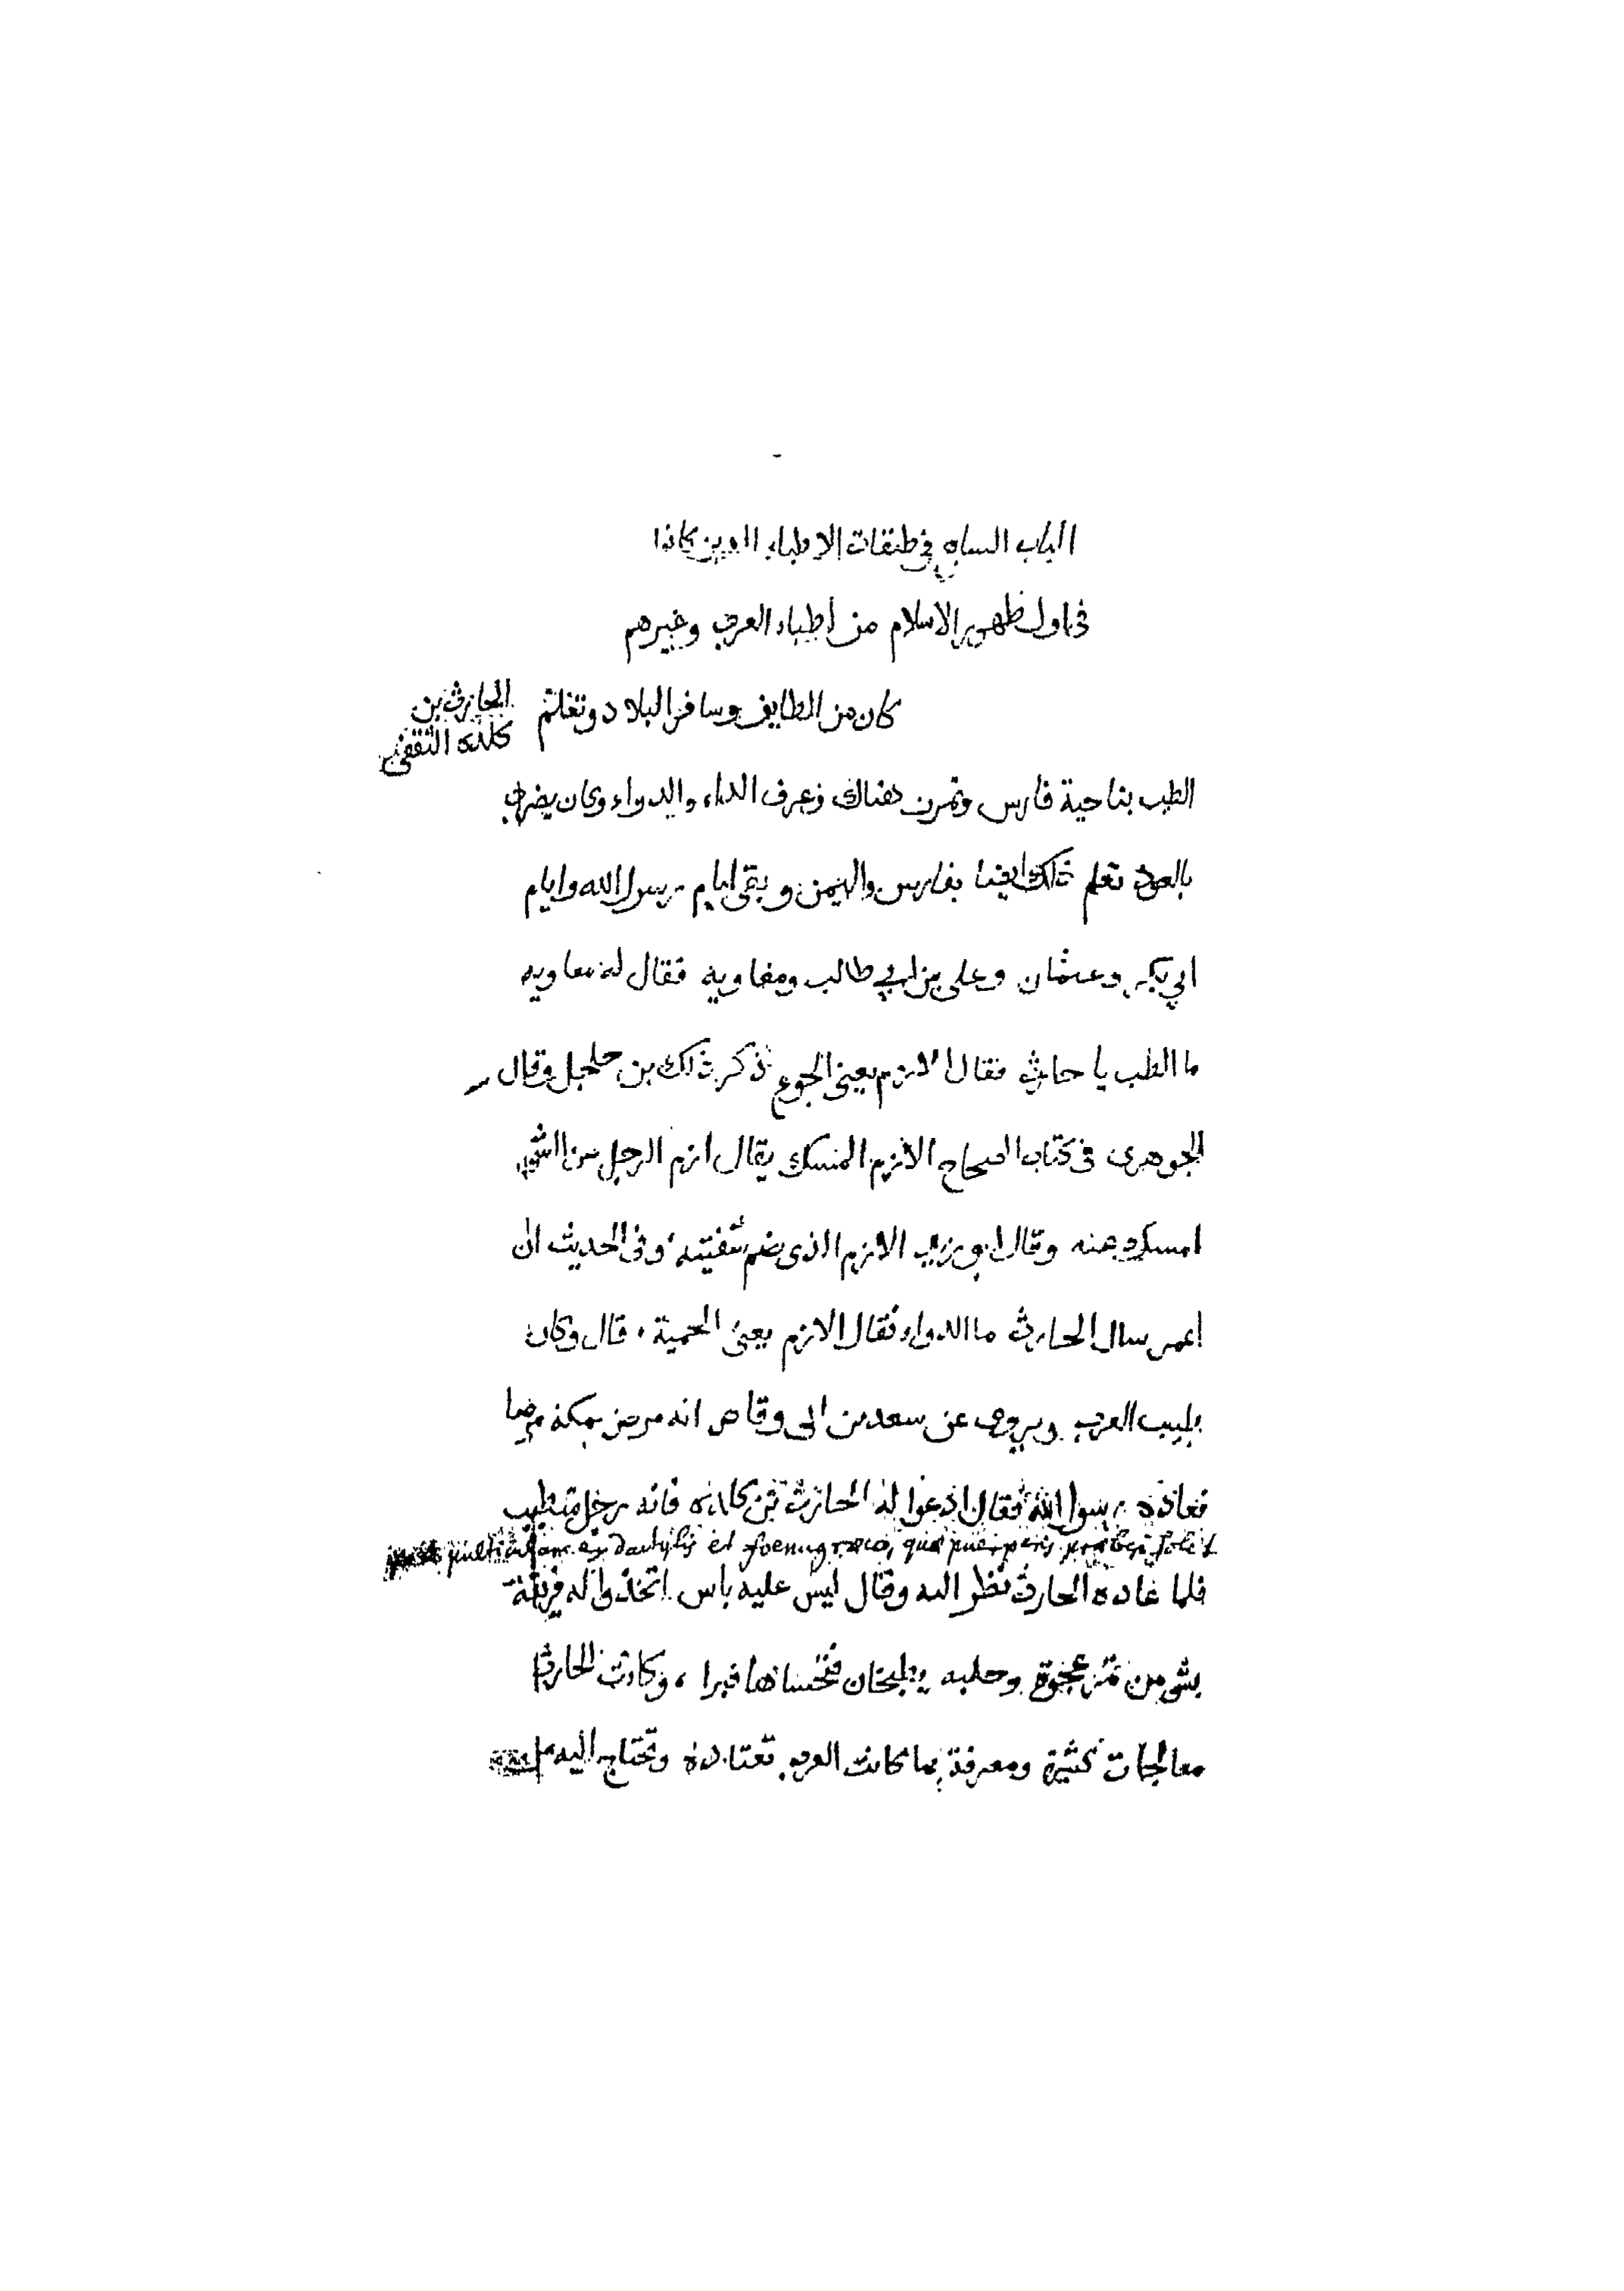 الباب السابع في طبقات الاطباء الدين كانوا
في اول ظهور الاسلام من اطباء العرب وغيرهم
الحارث بن
كلده الثقفي
كان من الطايف وسافر البلاد وتعلم
الطب بناحية فارس وتمرن هناك وعرف الداء والدواء وكان يضرب
بالعود تعلم ذلك ايضا بفارس واليمن وبقى ايام رسول الله وايام
ابي بكر وعثمان وعلي بن ابي طالب ومعاويه فقال له معاويه
ما الطب يا حارث فقال الازم يعنى الجوع ذكر ذلك بن جلجل وقال
الجوهرى في كتاب الصحاح الازم المسك يقال ازم الرجل من الشي
امسك عنه وقال ابو زيد الازم الذى يضم شفتيه وفى الحديث ان
عمر سال الحارث ما الدواء فقال الازم يعنى الحمية ، قال وكان
طبيب العرب ويروى عن سعد بن ابى وقاص انه مرض بمكة مرضا
فعاده رسول الله فقال ادعوا له الحارث بن كلده فانه رجل متطبب
ex dactylis et foenugræco, quæ puerperis præberi solet
فلما عاده الحارث نظر اليه وقال ليس عليه باس اتخذوا له فريقة
بشى من تمر عجوة وحلبه يطبخان فتحساها فبرا ، وكانت للحارث
معالجات كثيرة ومعرفة بما كانت العرب تعتاده وتحتاج اليه